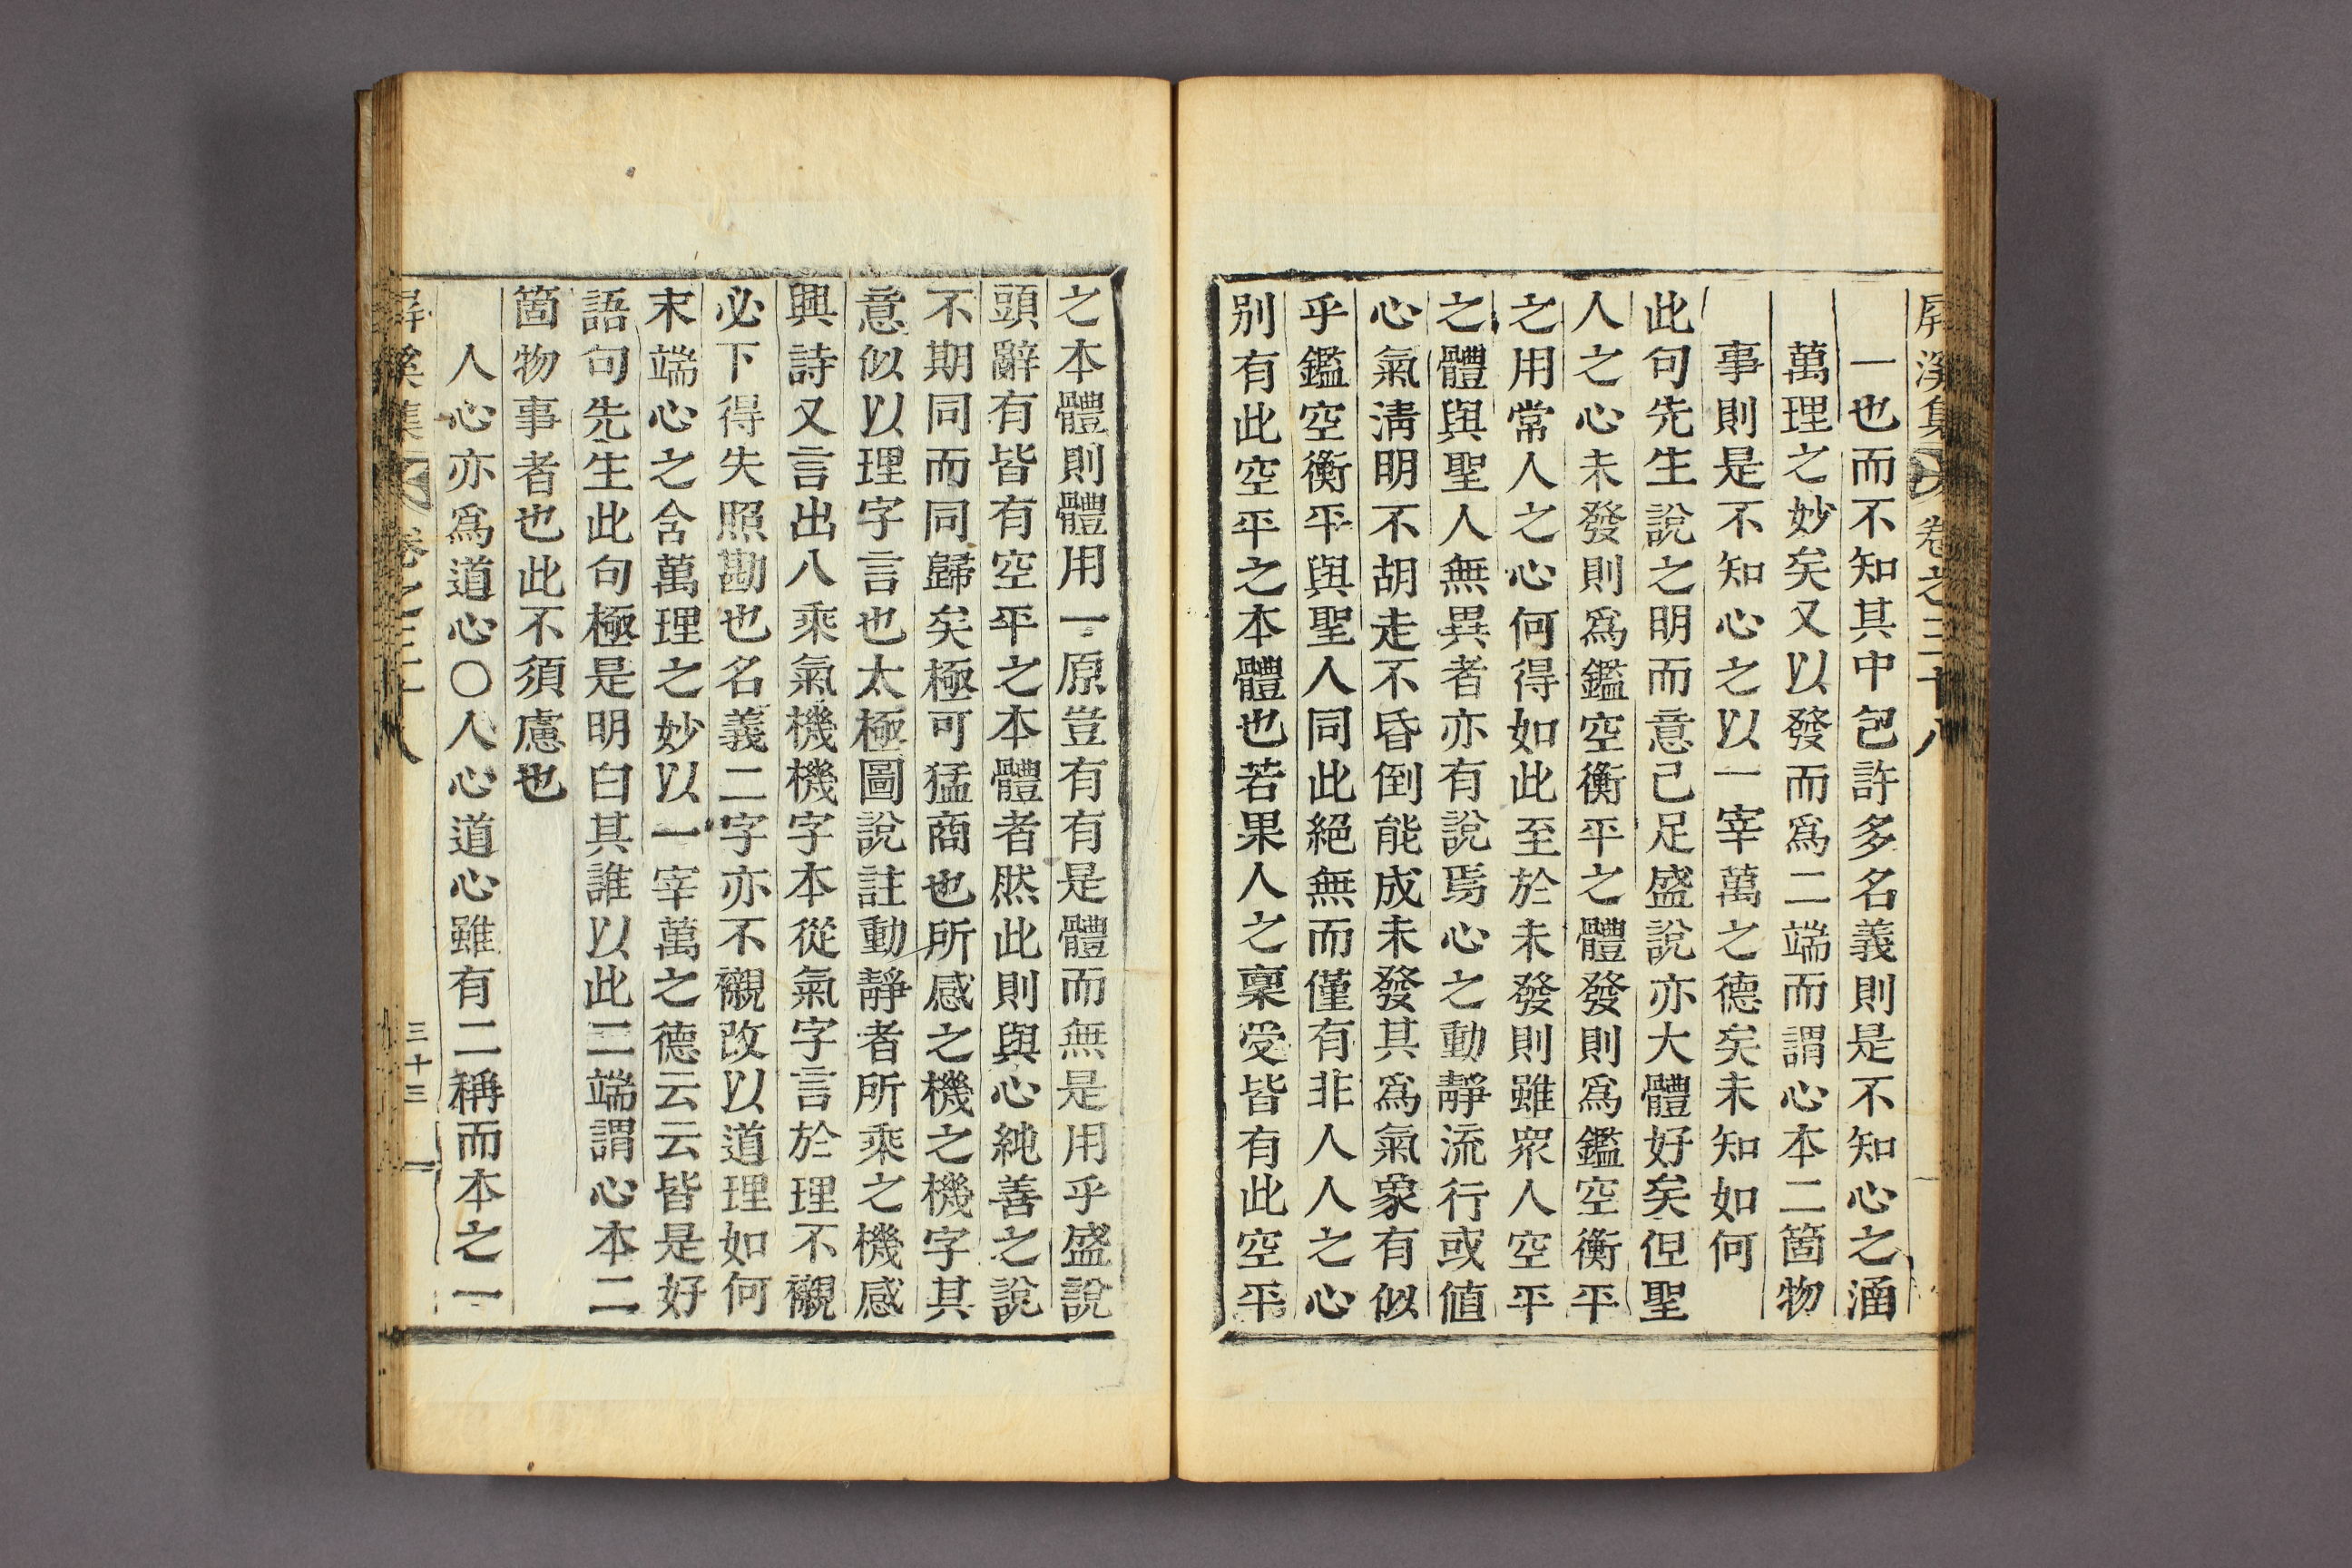 屛溪集 卷之三十八
一也而不知其中包許多名義則是不知心之涵
萬理之妙矣又以發而爲二端而謂心本二箇物
事則是不知心之以一宰萬之德矣未知如何
此句先生說之明而意已足盛說亦大體好矣但聖
人之心未發則爲鑑空衡平之體發則爲鑑空衡平
之用常人之心何得如此至於未發則雖衆人空平
之體與聖人無異者亦有說焉心之動靜流行或値
心氣淸明不胡走不昏倒能成未發其爲氣象有似
乎鑑空衡平與聖人同此絕無而僅有非人人之心
別有此空平之本體也若果人之稟受皆有此空平
之本體則體用一原豈有有是體而無是用乎盛說
頭辭有皆有空平之本體者然此則與心純善之說
不期同而同歸矣極可猛商也所感之機之機字其
意似以理字言也太極圖說註動靜者所乘之機感
興詩又言出入乘氣機機字本從氣字言於理不襯
必下得失照勘也名義二字亦不襯改以道理如何
末端心之含萬理之妙以一宰萬之德云云皆是好
語句先生此句極是明白其誰以此二端謂心本二
箇物事者也此不須慮也
人心亦爲道心○人心道心雖有二稱而本之一
屛溪集 卷之三十八 三十三